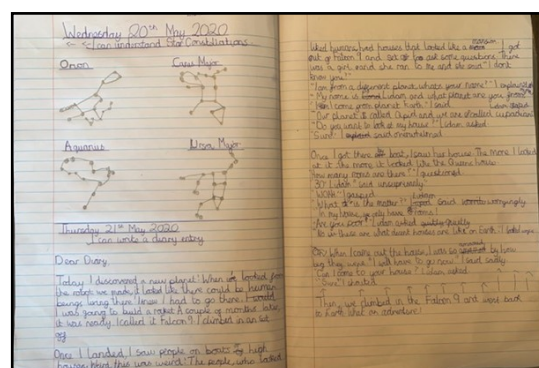 Wednesday 20th May 2020
I can understand Star Constellations
Orion
Canis Major
Aquarius
Ursa Major
Thursday 21st May 2020
I can write a diary entry
Dear Diary,
Today I discovered a new planet! When we looked from
the robot we made, it looked like there could be human
beings living there. I knew I had to go there.
I was going to build a rocket. A couple of months later,
it was ready. I called it Falcon 9. I climbed in and set
off
Once I landed, I saw people on boats high
this was weird! The people, who looked
liked humans, had houses that looked like a mansion. I got
out of Falcon 9 and ask some questions. There
was a girl and she ran to me and she said "I don't
know you?"
"I am from a different planet, what's your name?" I
"My name is and what planet are you from
I come from planet Earth." I said.
"Our planet is called and we are
"Do you want to look at my house?" asked
"Sure" said
Once I got there boat, I saw his house. The more I looked
at it, the more it looked like the Queens house
"How many rooms are there?" I questioned
"30" said
"WOAH" I gasped
"What is the matter?"
"In my house, we only have rooms!
"Are you poor" asked quietly
"No in this are what about houses are like on Earth."
When I came out the house, I was so by how
big they were. "I will have to go now" I said sadly
"Can I come to your house? asked
"Sure" I shouted
Then, we climbed in the Falcon 9 and went back
to Earth. What an adventure!